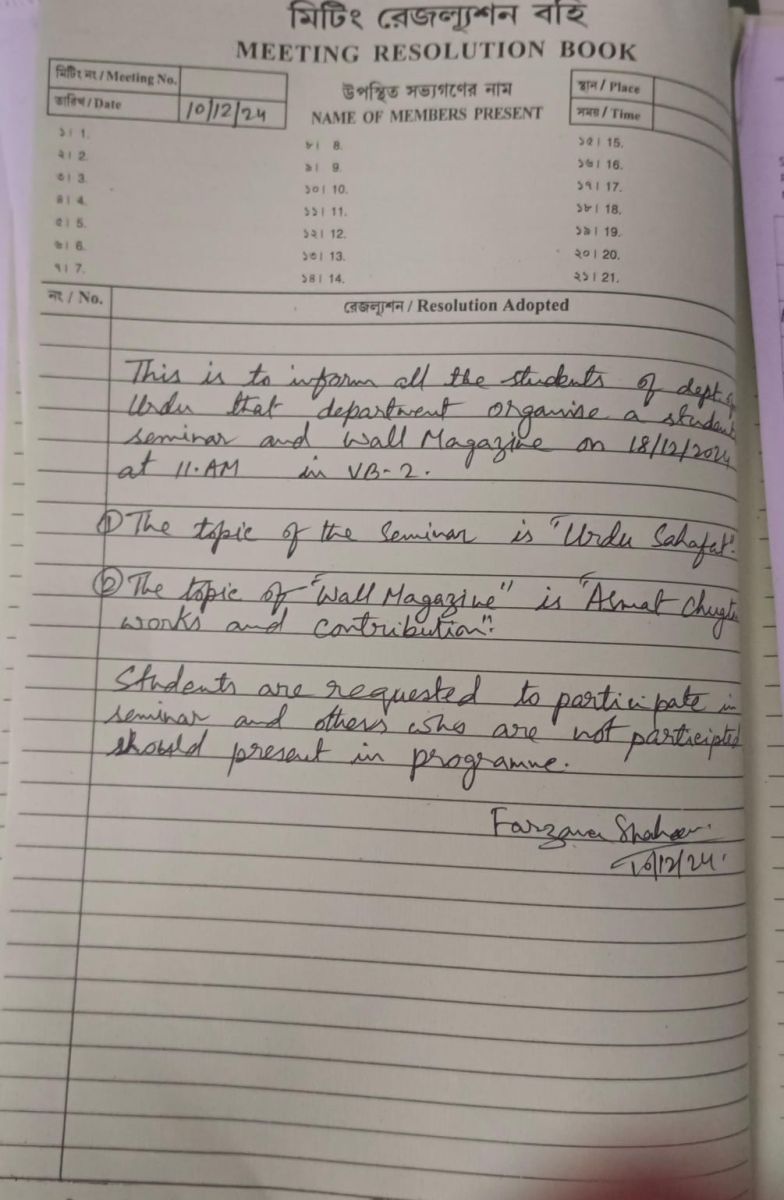 মিটিং রেজল্যুশন বহি
MEETING RESOLUTION BOOK
মিটিং নং / Meeting No.
তারিখ / Date 10/12/24
উপস্থিত সভ্যগণের নাম
NAME OF MEMBERS PRESENT
স্থান / Place
সময় / Time
১। 1.
২। 2.
৩। 3.
৪। 4.
৫। 5.
৬। 6.
৭। 7.
৮। 8.
৯। 9.
১০। 10.
১১। 11.
১২। 12.
১৩। 13.
১৪। 14.
১৫। 15.
১৬। 16.
১৭। 17.
১৮। 18.
১৯। 19.
২০। 20.
২১। 21.
নং / No.
রেজল্যুশন / Resolution Adopted
This is to inform all the students of dept of
Urdu that department organise a student
seminar and Wall Magazine on 18/12/2024
at 11.AM in VB-2.
① The topic of the Seminar is "Urdu Sahafat".
② The topic of "Wall Magazine" is "Asmat Chugtai
works and contribution".
Students are requested to participate in
seminar and others who are not participted
should present in programme.
Farzana Shaheen.
10/12/24.